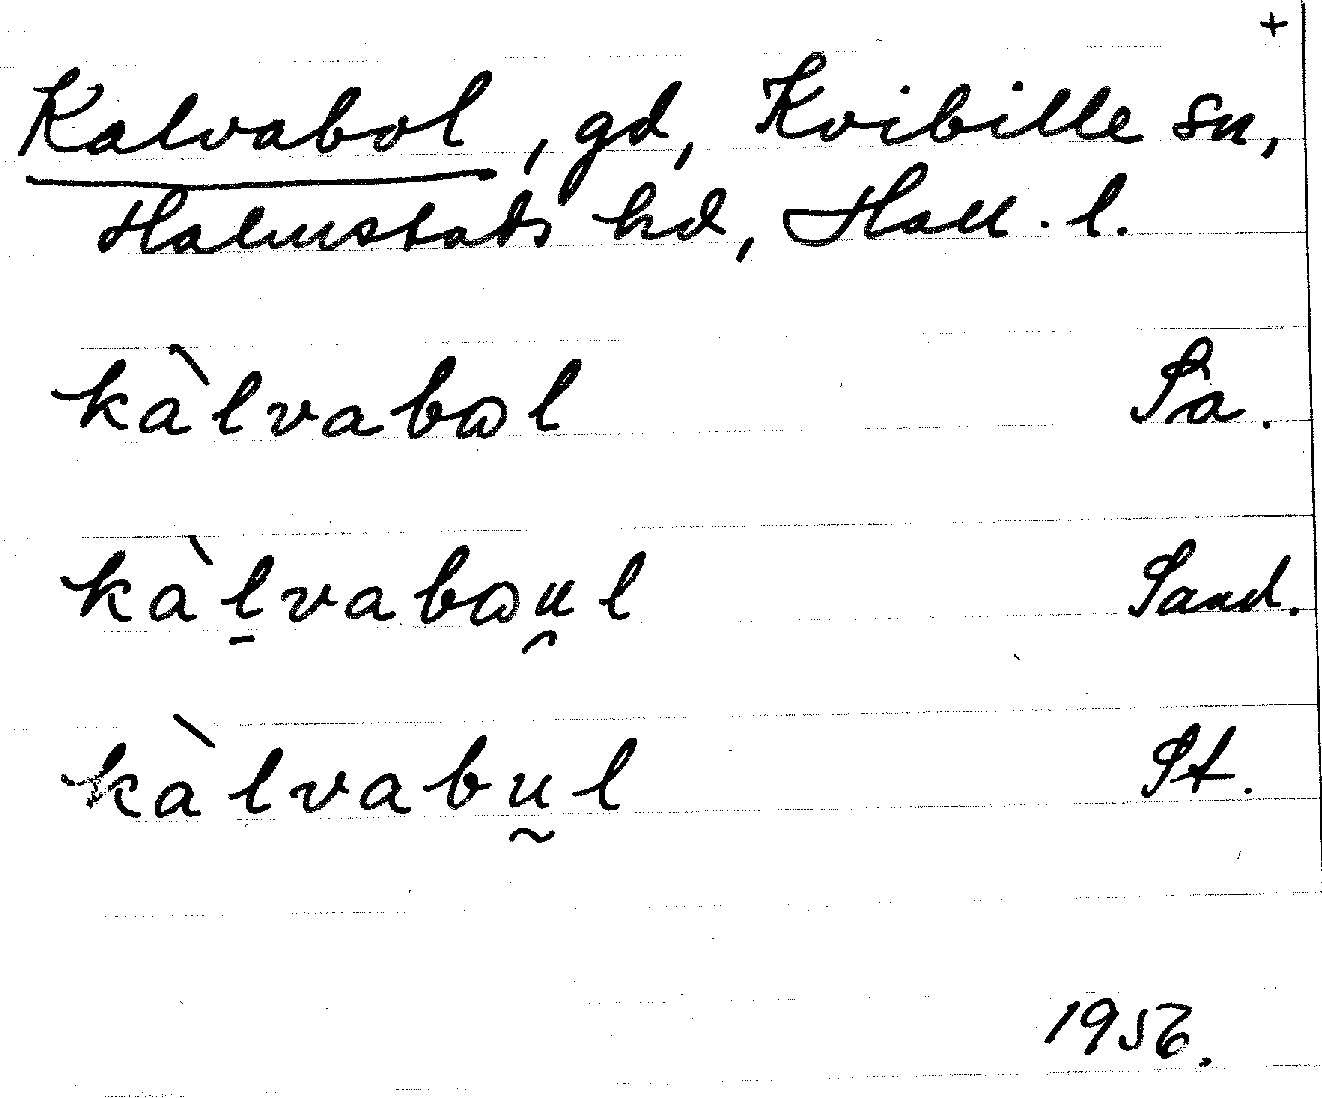 +
Kalvabol, gd, Kvibille sn,
Halmstads hd, Hall. l.
kàlvabɷl Sa.
kàl̠vabɷu̯l Sand.
kàlvabṵl St.
1956.